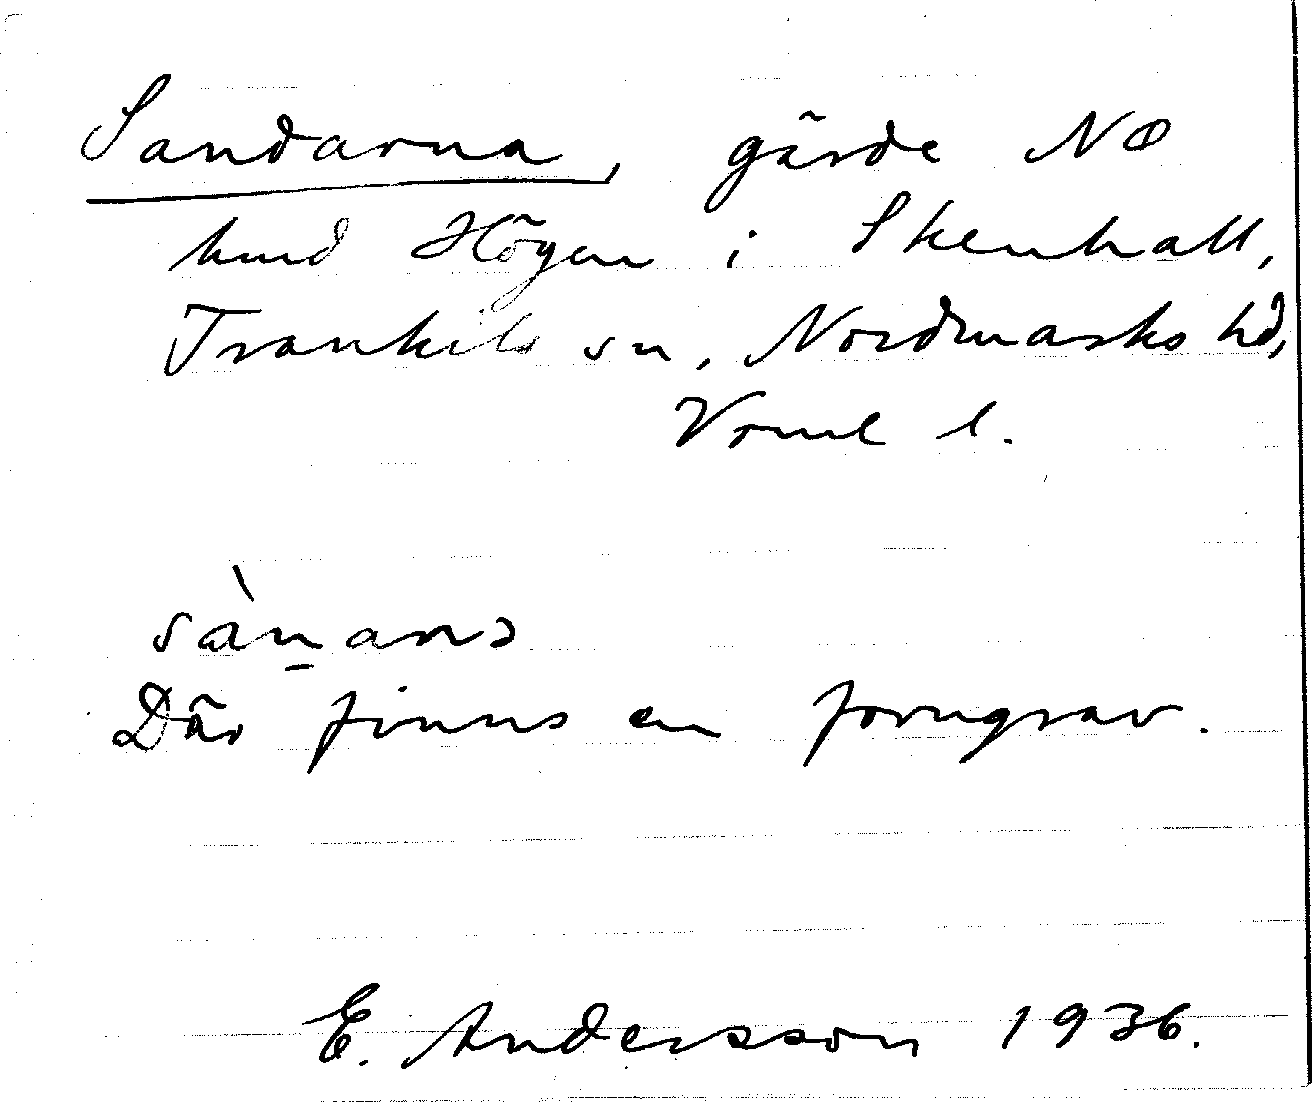 Sandarna, gärde NO
hmd Högen i Skenhall,
Trankils sn, Nordmarks hd,
Vrml l.
sànanɔ
Där finns en forngrav.
E. Andersson 1936.